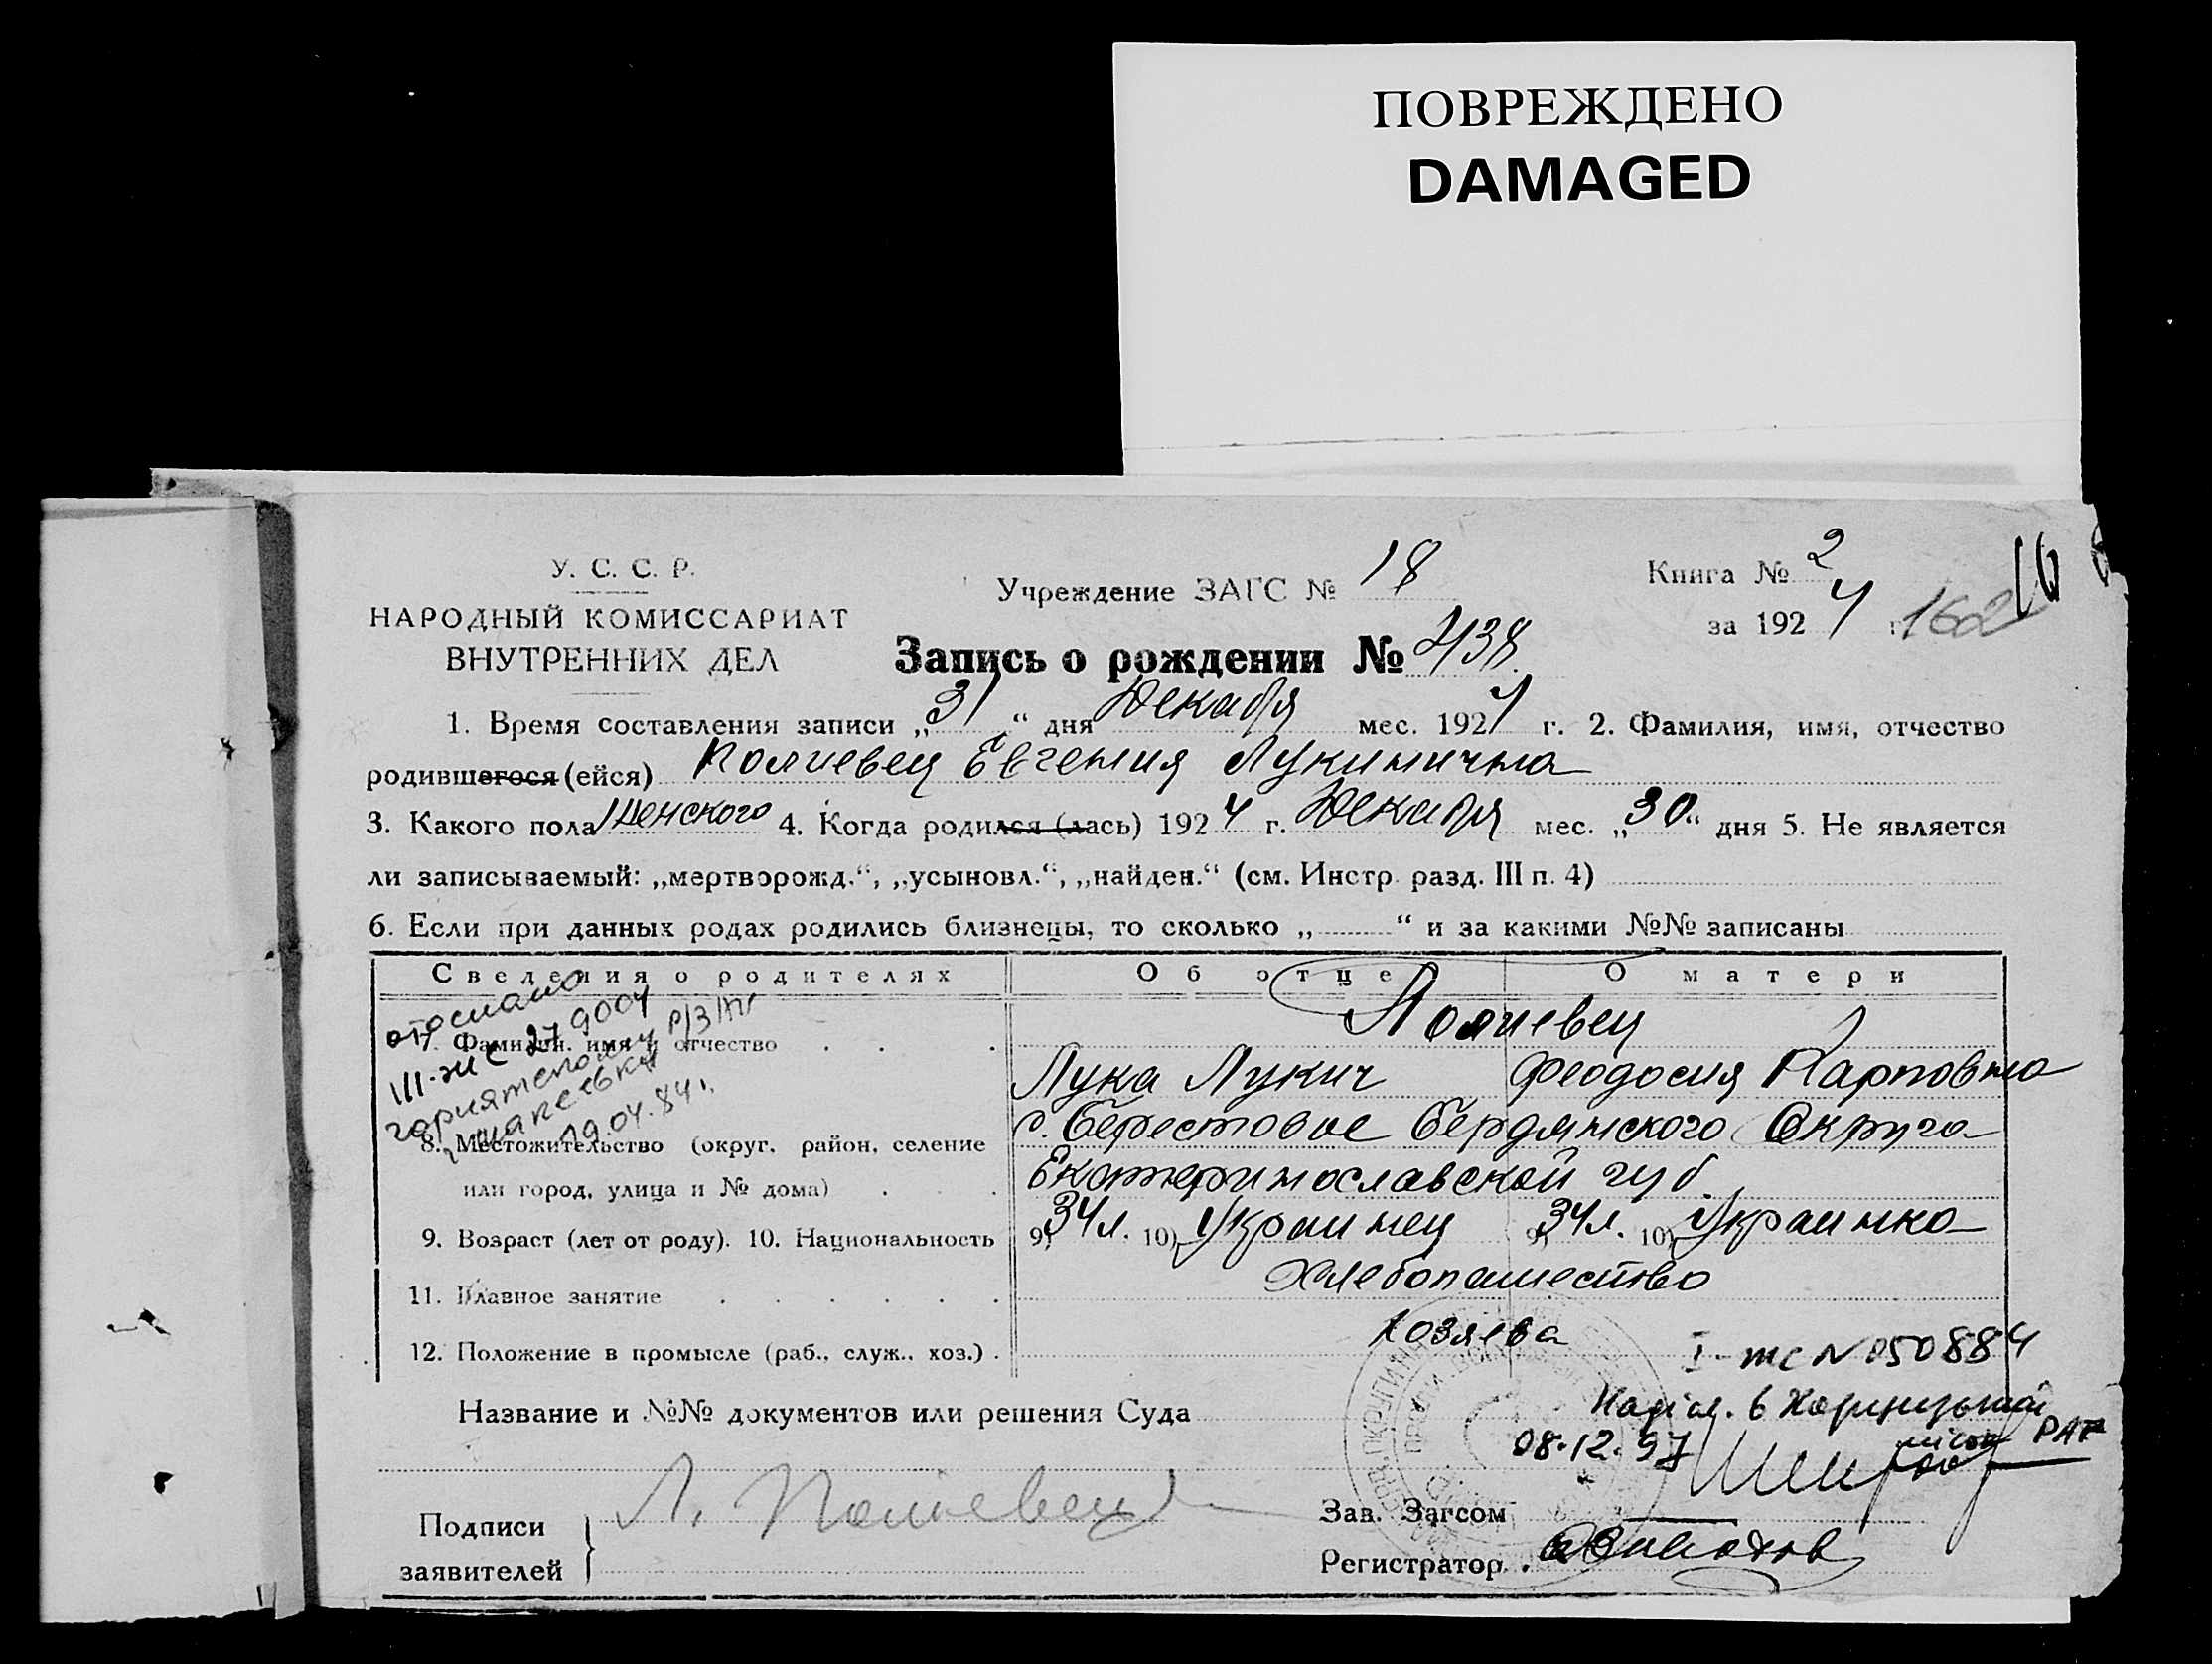 ПОВРЕЖДЕНО
DAMAGED
У. С. С. Р.
НАРОДНЫЙ КОМИССАРИАТ
ВНУТРЕННИХ ДЕЛ
Учреждение ЗАГС № 18
Книга № 2
за 1924 г. 162
Запись о рождении № 438
1. Время составления записи „31“ дня Декабря мес. 1924 г. 2. Фамилия, имя, отчество
родившегося (ейся) Полиевец Евгения Лукинична
3. Какого пола Женского 4. Когда родился (лась) 1924 г. Декабря мес. „30“ дня 5. Не является
ли записываемый: „мертворожд.“, „усыновл.“, „найден.“ (см. Инстр. разд. III п. 4)
6. Если при данных родах родились близнецы, то сколько „ “ и за какими №№ записаны
Сведения о родителях Об отце О матери
отослано
III-ЖС 279004
19.04.84 г.
Полиевец
7. Фамилия, имя и отчество
Лука Лукич Феодосия Карповна
8. Местожительство (округ, район, селение
или город, улица и № дома)
с. Берестовое Бердянского Округа
Екатеринославской губ.
9. Возраст (лет от роду). 10. Национальность 9) 34 л. 10) Украинец 9) 34 л. 10) Украинка
11. Главное занятие Хлебопашество
12. Положение в промысле (раб., служ., хоз.) Хозяева
I-жс № 050884
Название и №№ документов или решения Суда
08.12.97
РАГ
Подписи
заявителей
Л. Полиевец
Зав. Загсом
Регистратор